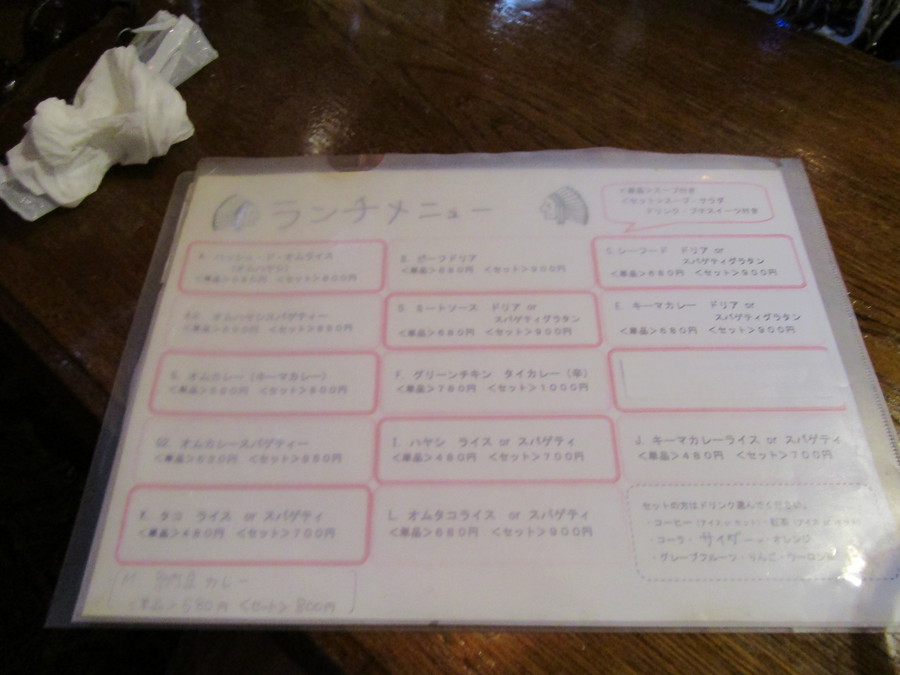 ランチメニュー
<単品>スープ付き
<セット>スープ・サラダ
ドリンク・プチスイーツ付き
A. ハッシュ・ド・オムライス
(オムハヤシ)
B. ビーフドリア
<単品>680円 <セット>900円
C. シーフード ドリア or
スパゲティグラタン
<単品>680円 <セット>900円
オムハヤシスパゲティー
D. ミートソース ドリア or
スパゲティグラタン
<単品>680円 <セット>900円
E. キーマカレー ドリア or
スパゲティグラタン
<単品>680円 <セット>900円
オムカレー (キーマカレー)
F. グリーンチキン タイカレー (辛)
<単品>780円 <セット>1000円
オムカレースパゲティー
I. ハヤシ ライス or スパゲティ
<単品>480円 <セット>700円
J. キーマカレーライス or スパゲティ
<単品>480円 <セット>700円
K. タコ ライス or スパゲティ
<単品>480円 <セット>700円
L. オムタコライス or スパゲティ
<単品>680円 <セット>900円
セットの方はドリンク選んでください。
・コーヒー (アイス or ホット)・紅茶 (アイス or ホット)
・コーラ・サイダー・オレンジ
・グレープフルーツ・りんご・ウーロン
M カレー
<単品>580円 <セット>800円